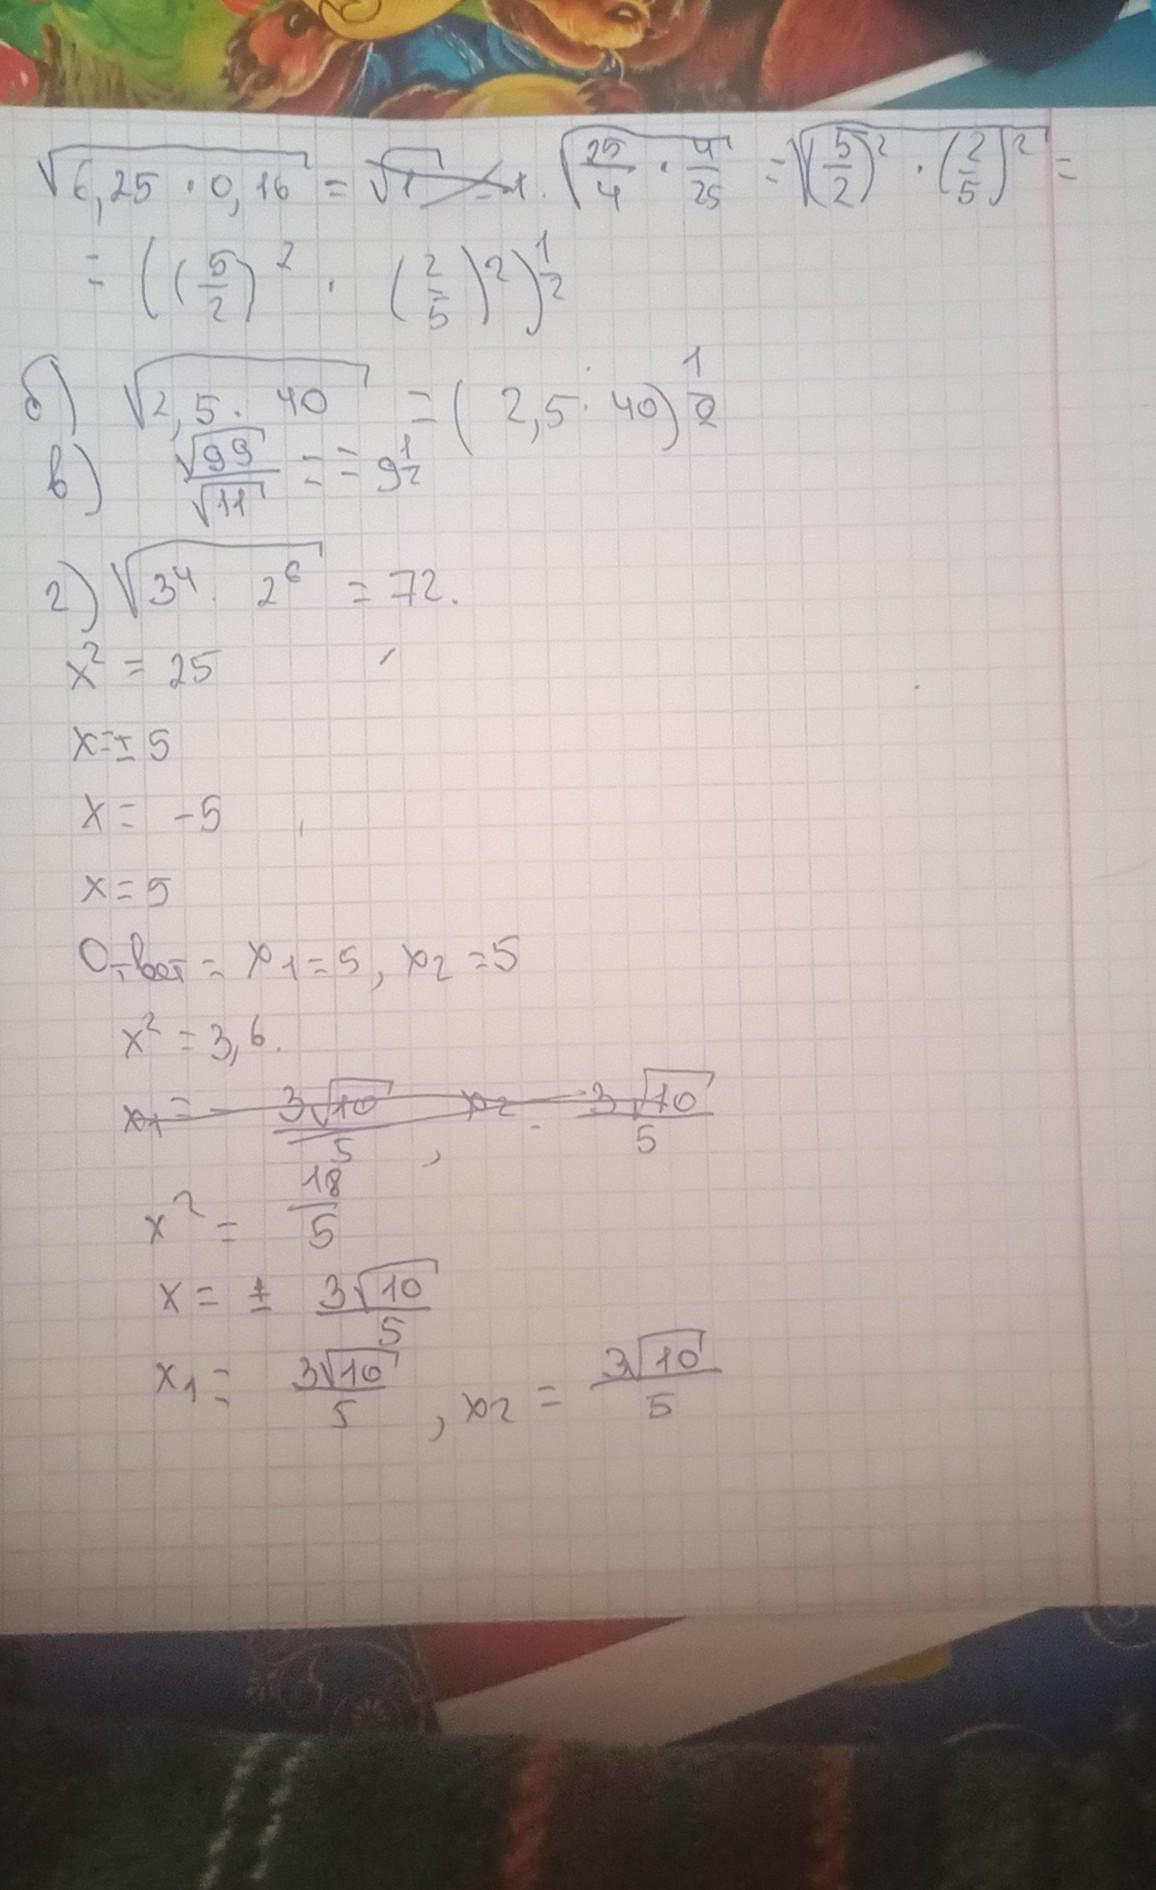 √(6,25 · 0,16) = √1 = 1. √(25/4 · 4/25) = √((5/2)² · (2/5)²) =
= ((5/2)² · (2/5)²)^(1/2)
б) √(2,5 · 40) = (2,5 · 40)^(1/2)
в) √99/√11 = = 9^(1/2)
г) √(3⁴ · 2⁶) = 72.
x² = 25
x = ± 5
x = -5
x = 5
Ответ = x₁ = 5, x₂ = 5
x² = 3,6.
x₁ = - 3√10/5, x₂ = 3√10/5
x² = 18/5
x = ± 3√10/5
x₁ = 3√10/5, x₂ = 3√10/5